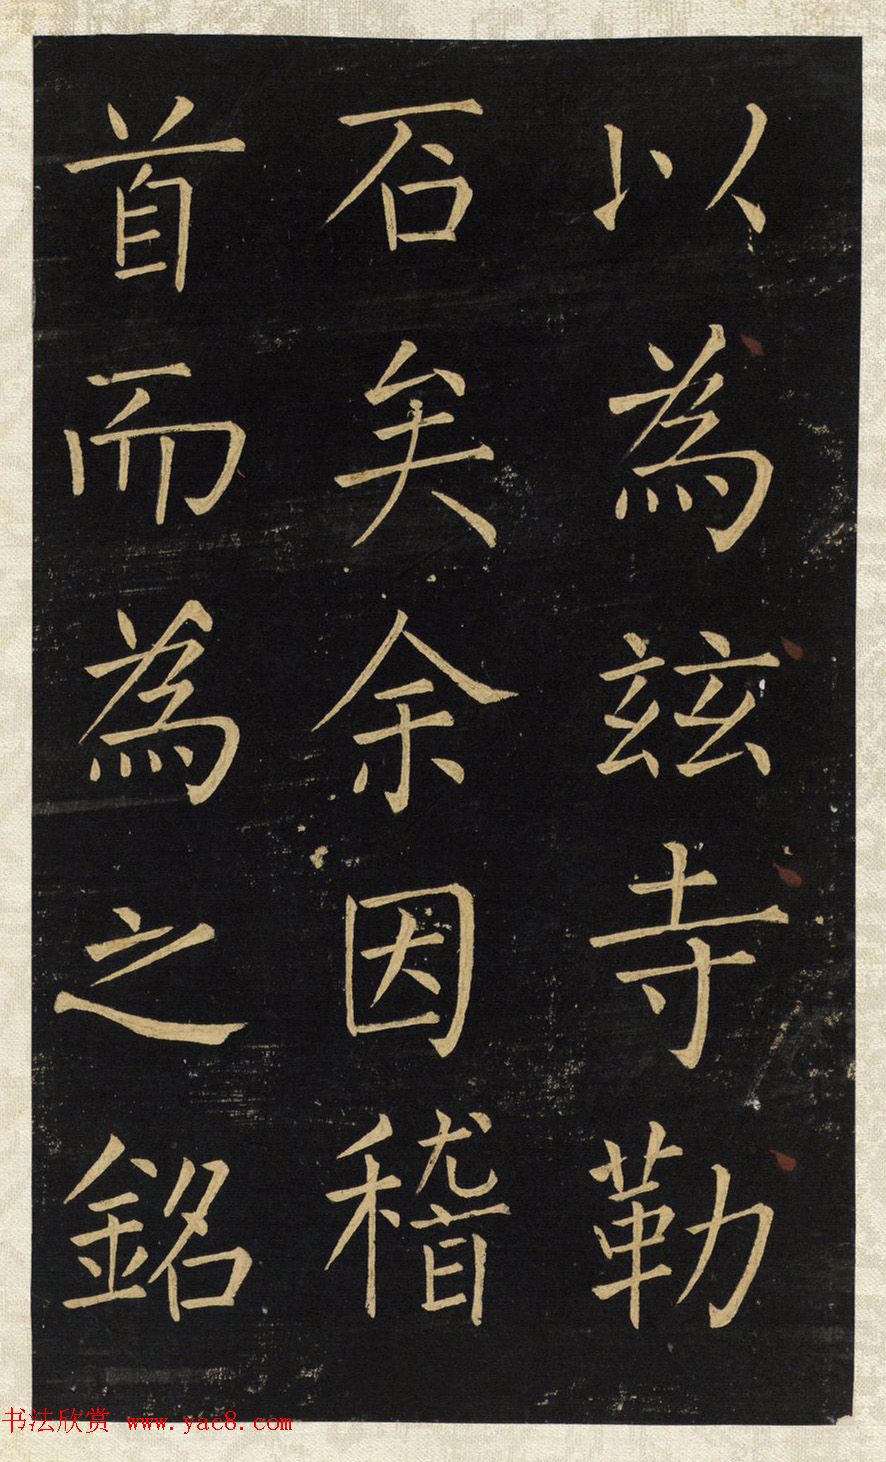 以為茲寺勒
石矣余因稽
首而為之銘
书法欣赏 www.yac8.com